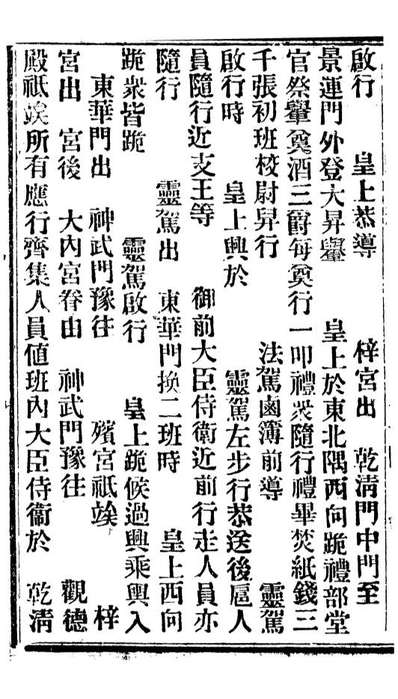 啟行　皇上恭導　梓宮出　乾淸門中門至
景運門外登大昇轝　皇上於東北隅西向跪禮部堂
官祭轝奠酒三爵每奠行一叩禮衆隨行禮畢焚紙錢三
千張初班校尉舁行　法駕鹵簿前導　靈駕
啟行時　皇上興於　靈駕左步行恭送後扈人
員隨行近支王等　御前大臣侍衛近前行走人員亦
隨行　靈駕出　東華門換二班時　皇上西向
跪衆皆跪　靈駕啟行　皇上跪候過興乘輿入
東華門出　神武門豫往　殯宮祗竢　梓
宮出　宮後　大內宮眷由　神武門豫往　觀德
殿祗竢所有應行齊集人員値班內大臣侍衛於　乾淸